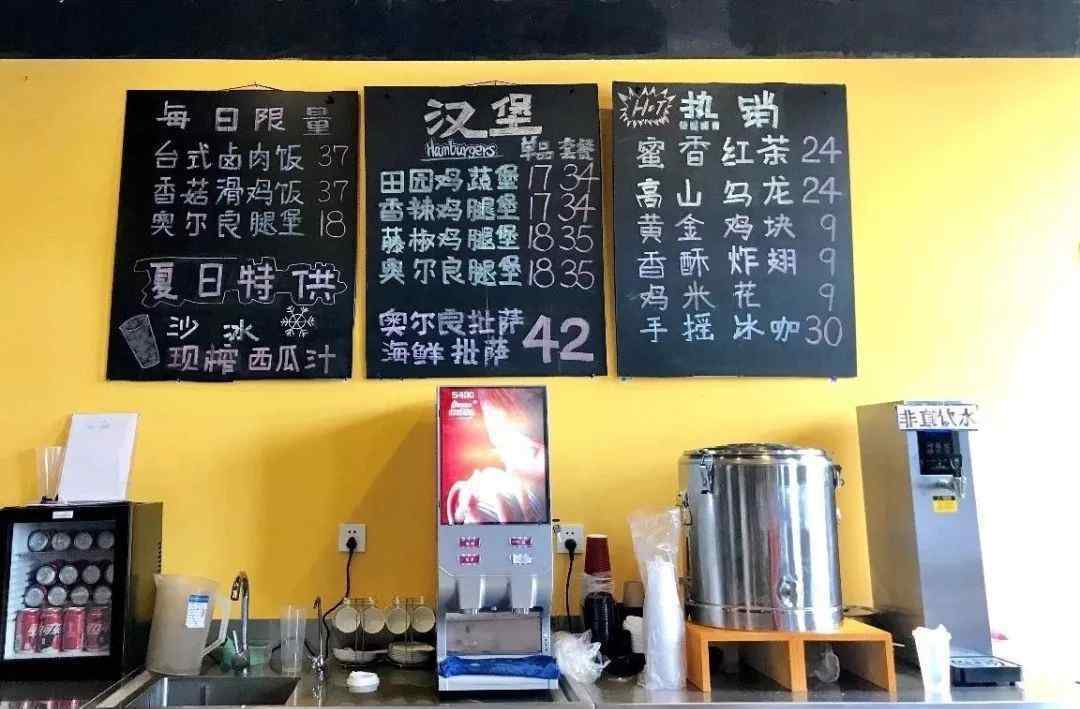 每日限量
台式卤肉饭 37
香菇滑鸡饭 37
奥尔良腿堡 18
夏日特供
沙冰
现榨西瓜汁
汉堡
Hamburgers 单品 套餐
田园鸡蔬堡 17 34
香辣鸡腿堡 17 34
藤椒鸡腿堡 18 35
奥尔良腿堡 18 35
奥尔良批萨
海鲜批萨 42
HOT 热销
蜜香红茶 24
高山乌龙 24
黄金鸡块 9
香酥炸翅 9
鸡米花 9
手摇冰咖 30
S400
非直饮水